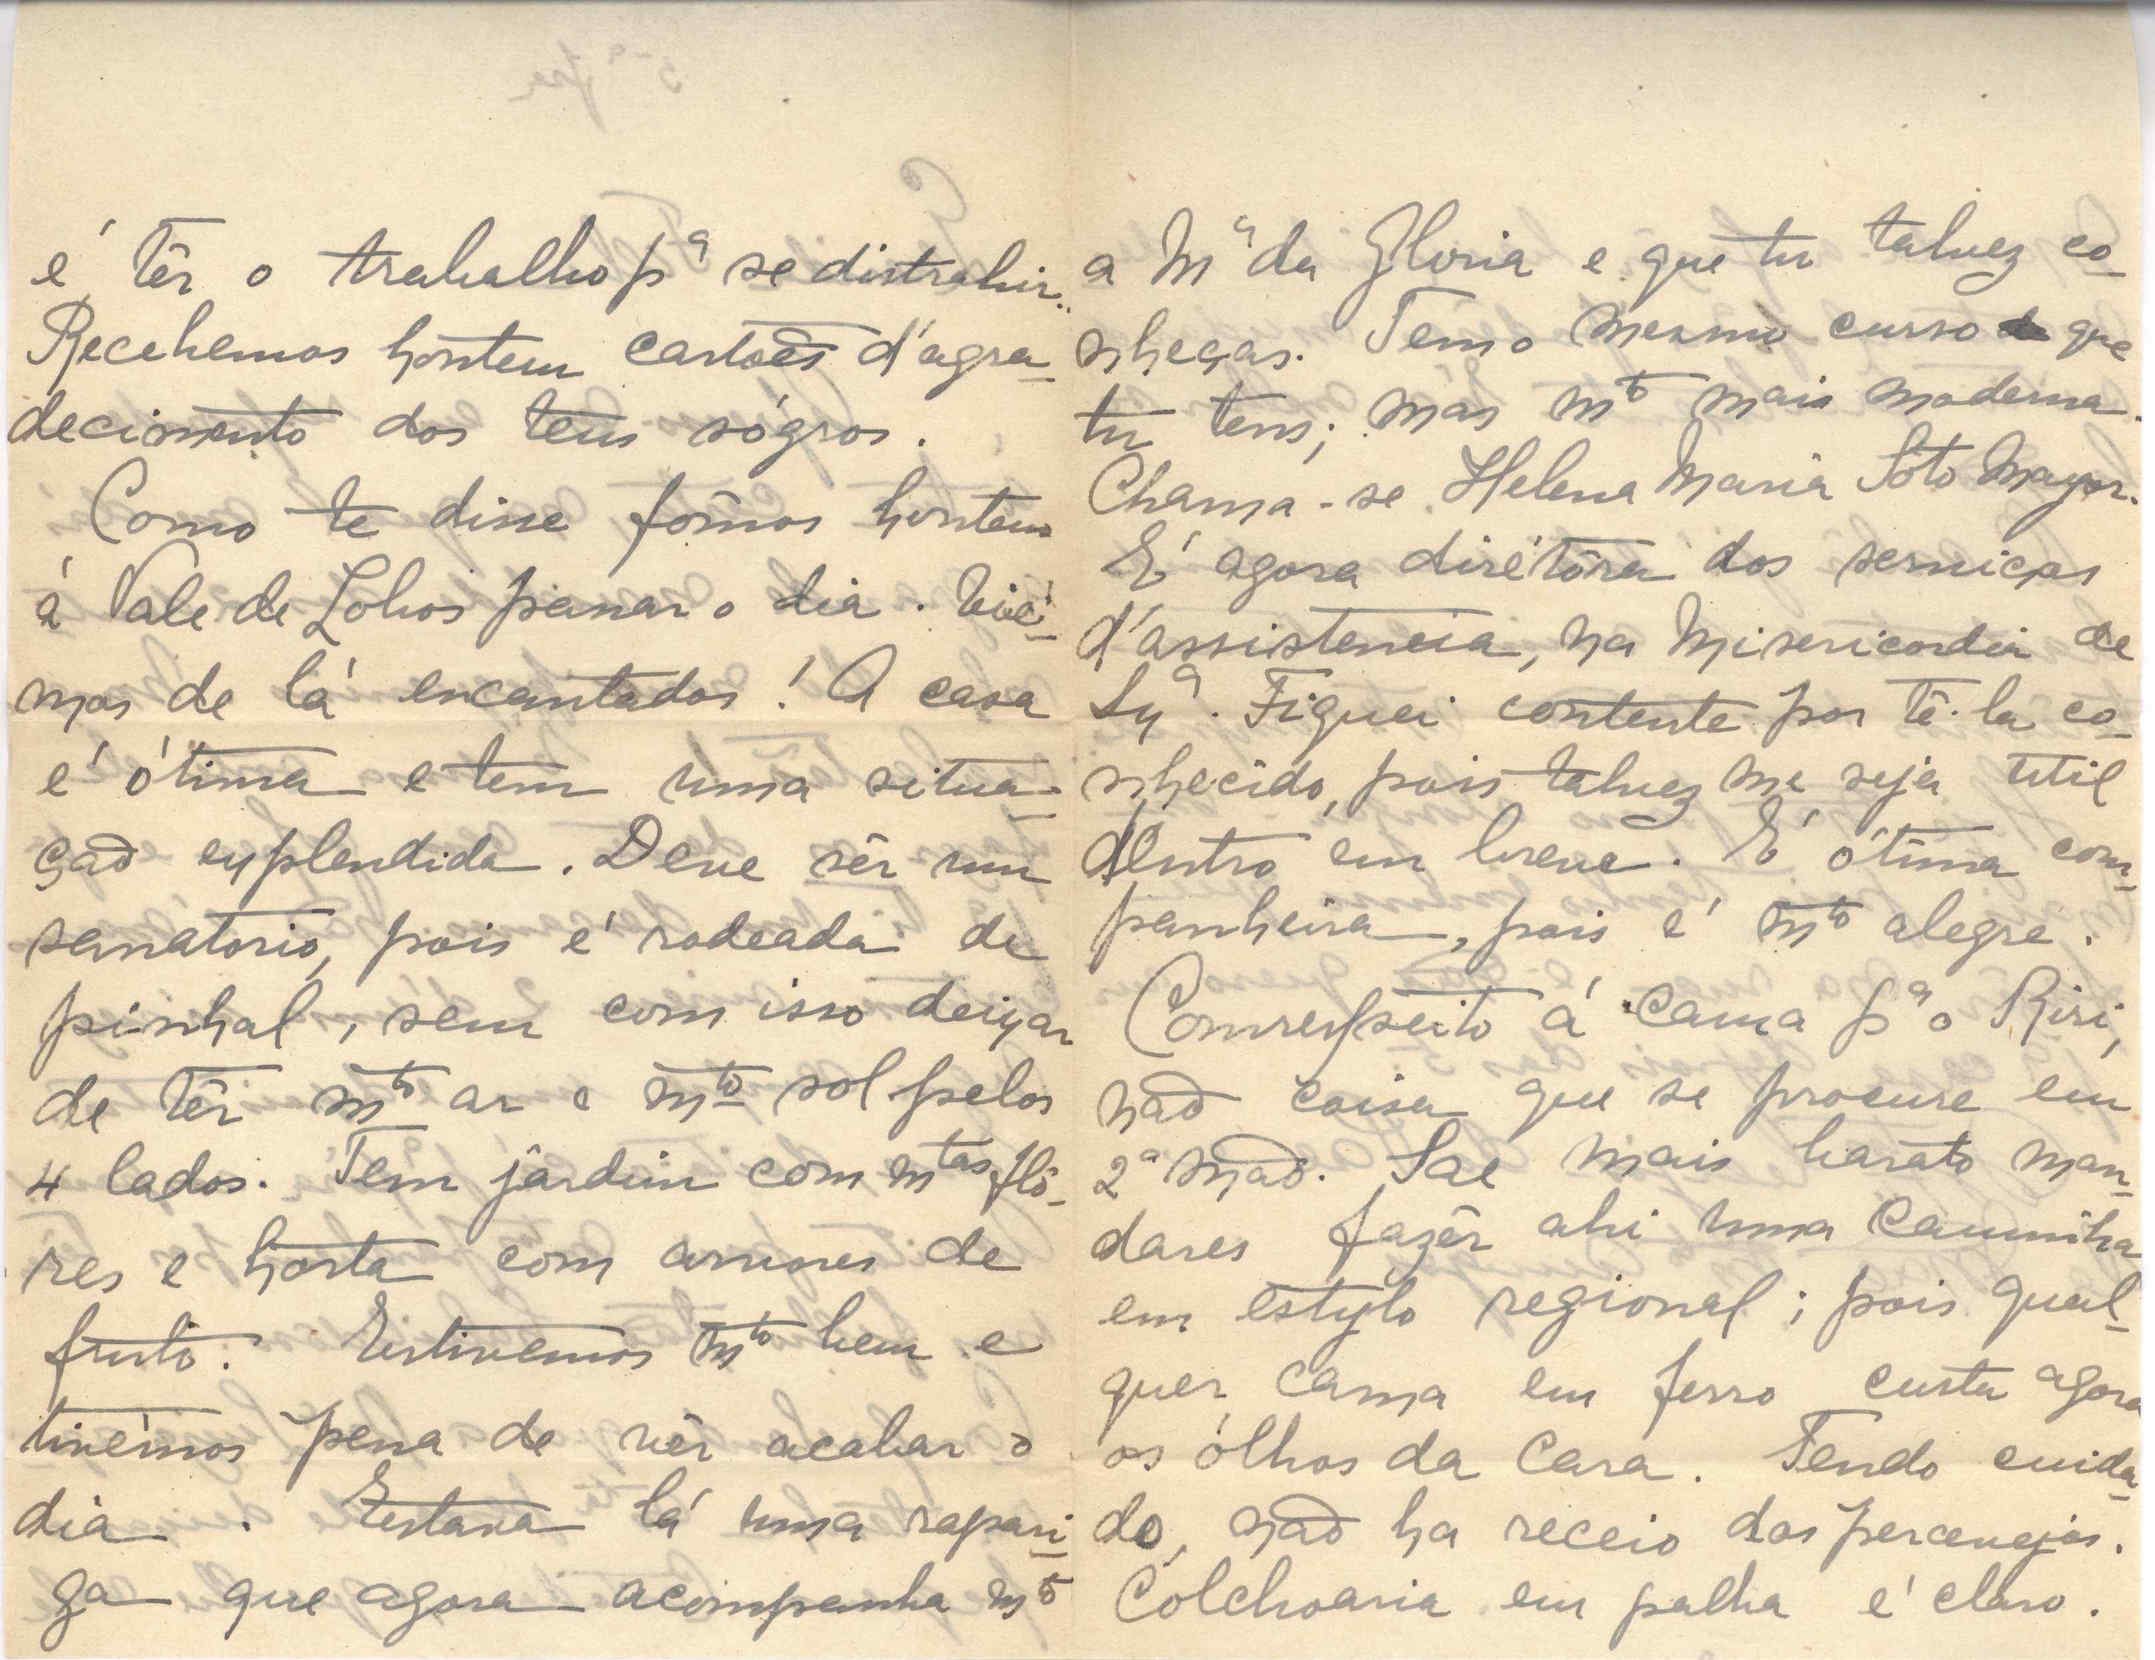 é têr o trabalho pª se distrahir.
Recebemos hontem cartões d'agra-
decimento dos teus sógros.
Como te disse fômos hontem
á Vale de Lobos passar o dia. Vié-
mos de lá encantados! A casa
é ótima e tem uma situa-
ção explendida. Deve sêr um
sanatorio, pois é rodeada de
pinhal, sem com isso deixar
de têr mto ar e mto sol pelos
4 lados. Tem jardim com mtas flô-
res e horta com arvores de
fruto. Estivemos mto bem e
tivémos pena de vêr acabar o
dia. Estava lá uma rapari-
ga que agora acompanha mto
a Mª da Gloria e que tu talvez co-
nheças. Tem o mesmo curso que
tu tens; mas mto mais moderna.
Chama-se Helena Maria Soto Mayor.
É agora dirétôra dos serviços
d'assistencia, na Misericordia de
Lxª. Fiquei contente por tê-la co-
nhecido, pois talvez me seja util
dentro em breve. É ótima com-
panheira, pois é mto alegre.
Com respeito á cama pª o Riri,
não coisa que se procure em
2ª mão. Sae mais barato man-
dares fazêr ahi uma caminha
em estylo regional; pois qual-
quer cama em ferro custa agora
os ólhos da cara. Tendo cuida-
do, não ha receio dos percevejos.
Colchoaria em palha é claro.